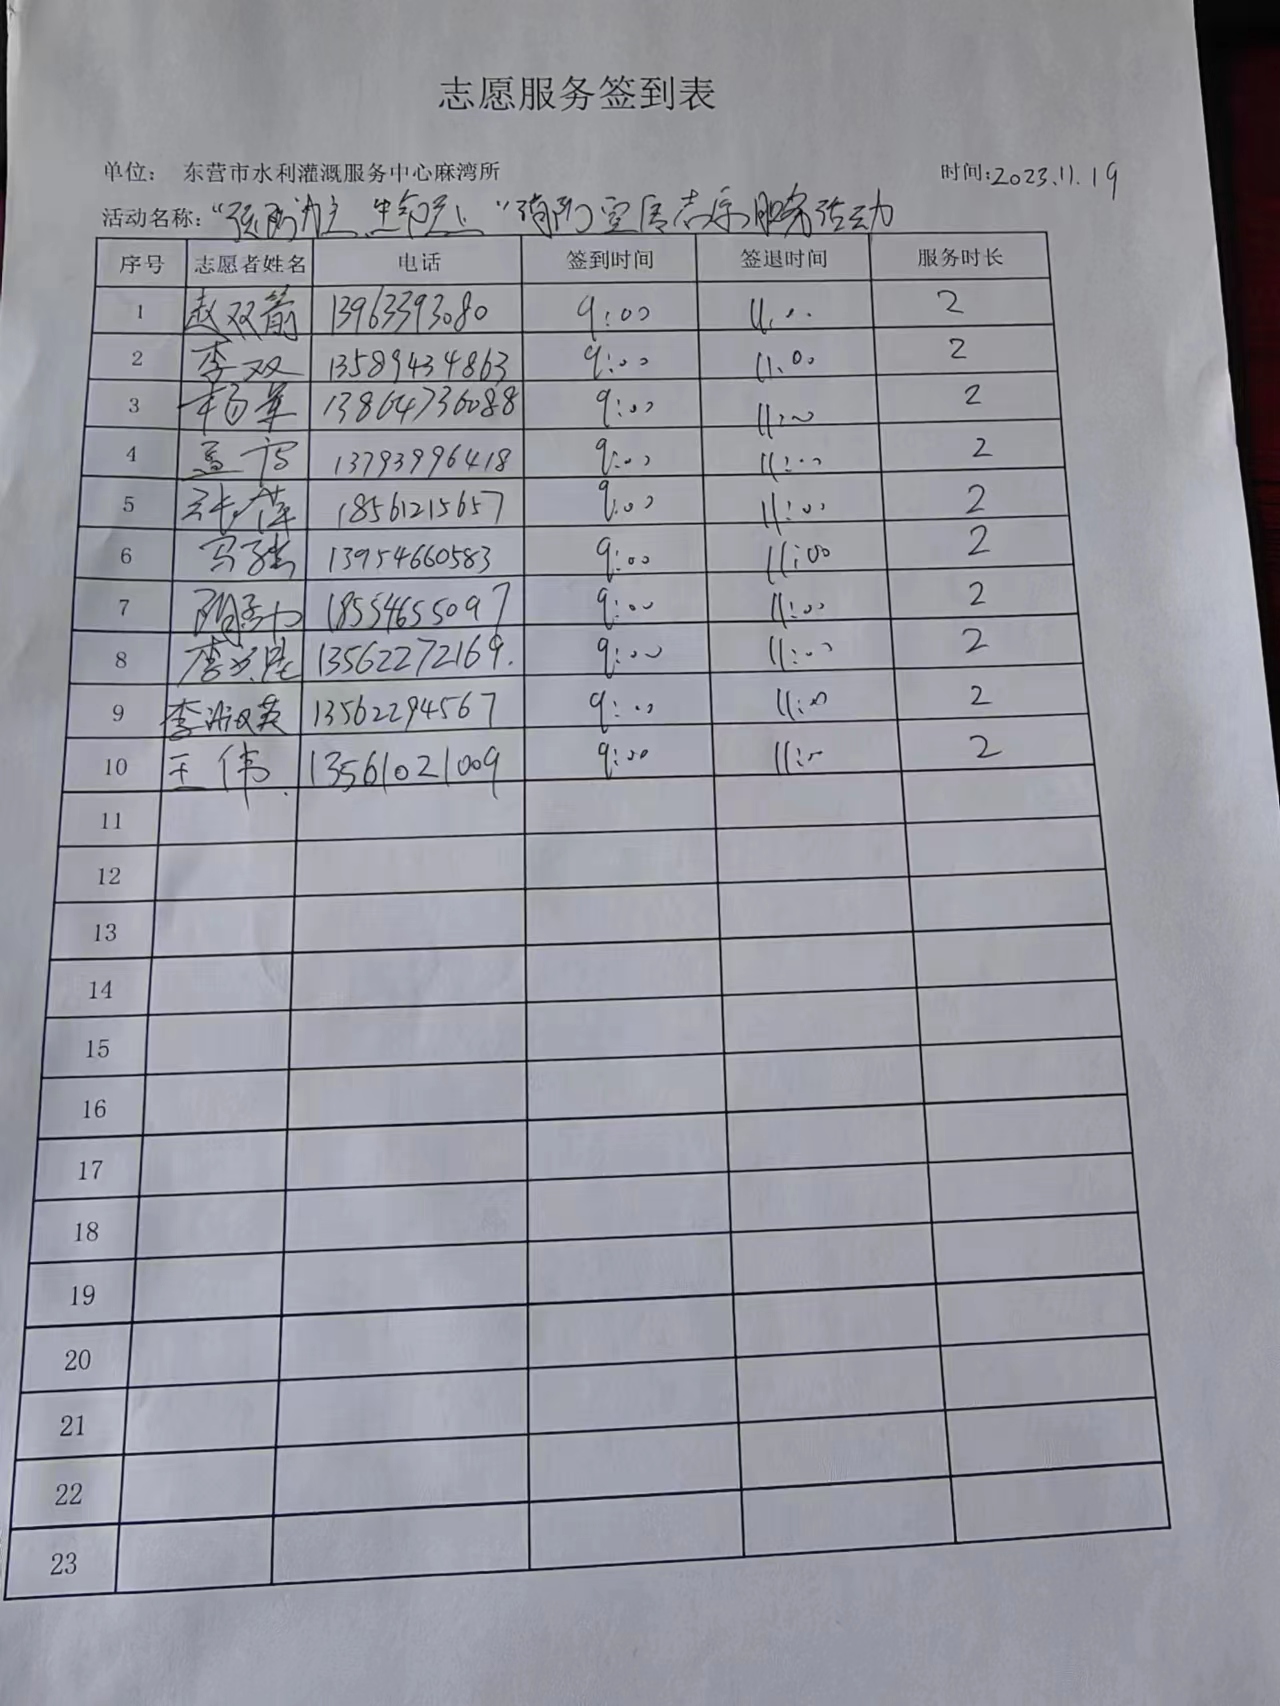 志愿服务签到表
单位： 东营市水利灌溉服务中心麻湾所 时间:2023.11.19
活动名称:"预防为主、生命至上"消防宣传志愿服务活动
序号 志愿者姓名 电话 签到时间 签退时间 服务时长
1 赵双箭 13963393080 9:00 11:00 2
2 李双 13589434863 9:00 11:00 2
3 杨军 13864736088 9:00 11:00 2
4 13793996418 9:00 11:00 2
5 张萍 18561215657 9:00 11:00 2
6 13954660583 9:00 11:00 2
7 18554655097 9:00 11:00 2
8 13562272169. 9:00 11:00 2
9 李淑英 13562294567 9:00 11:00 2
10 王伟. 13561021009 9:00 11:00 2
11
12
13
14
15
16
17
18
19
20
21
22
23